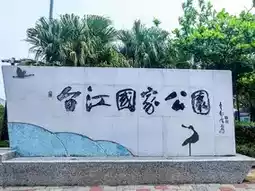 台江國家公園